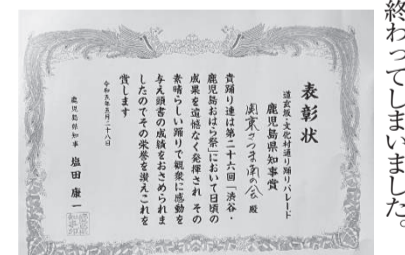 終わってしまいました。
表彰状
道玄坂・文化村通り踊りパレード
鹿児島県知事賞
関東さつま南の会 殿
貴踊り連は第二十六回「渋谷・
鹿児島おはら祭」において日頃の
成果を遺憾なく発揮され その
素晴らしい踊りで観衆に感動を
与え頭書の成績をおさめられま
したのでその栄誉を讃えこれを
賞します
令和五年五月二十八日
鹿児島県知事 塩田 康一